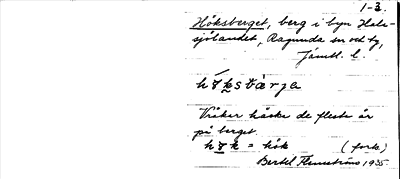 1-3.
Höksberget, berg i byn Hals-
sjölandet, Ragunda sn och tg,
Jämtl. l.
Vråker häcka de flesta år
på berget.
= hök (fork)
Bertel Flemström 1935